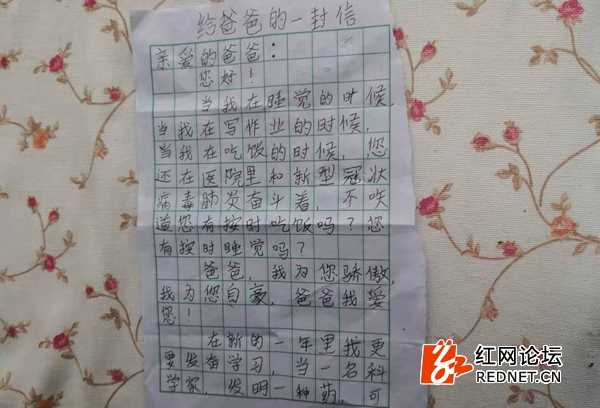 给爸爸的一封信
亲爱的爸爸：
您好！
当我在睡觉的时候，
当我在写作业的时候，
当我在吃饭的时候，您
还在医院里和新型冠状
病毒肺炎奋斗着，不吹
道您有按时吃饭吗？您
有按时睡觉吗？
爸爸，我为您骄傲，
我为您自豪，爸爸我爱
您！
在新的一年里我更
要发奋学习，当一名科
学家，发明一种药，可
红网论坛
REDNET.CN